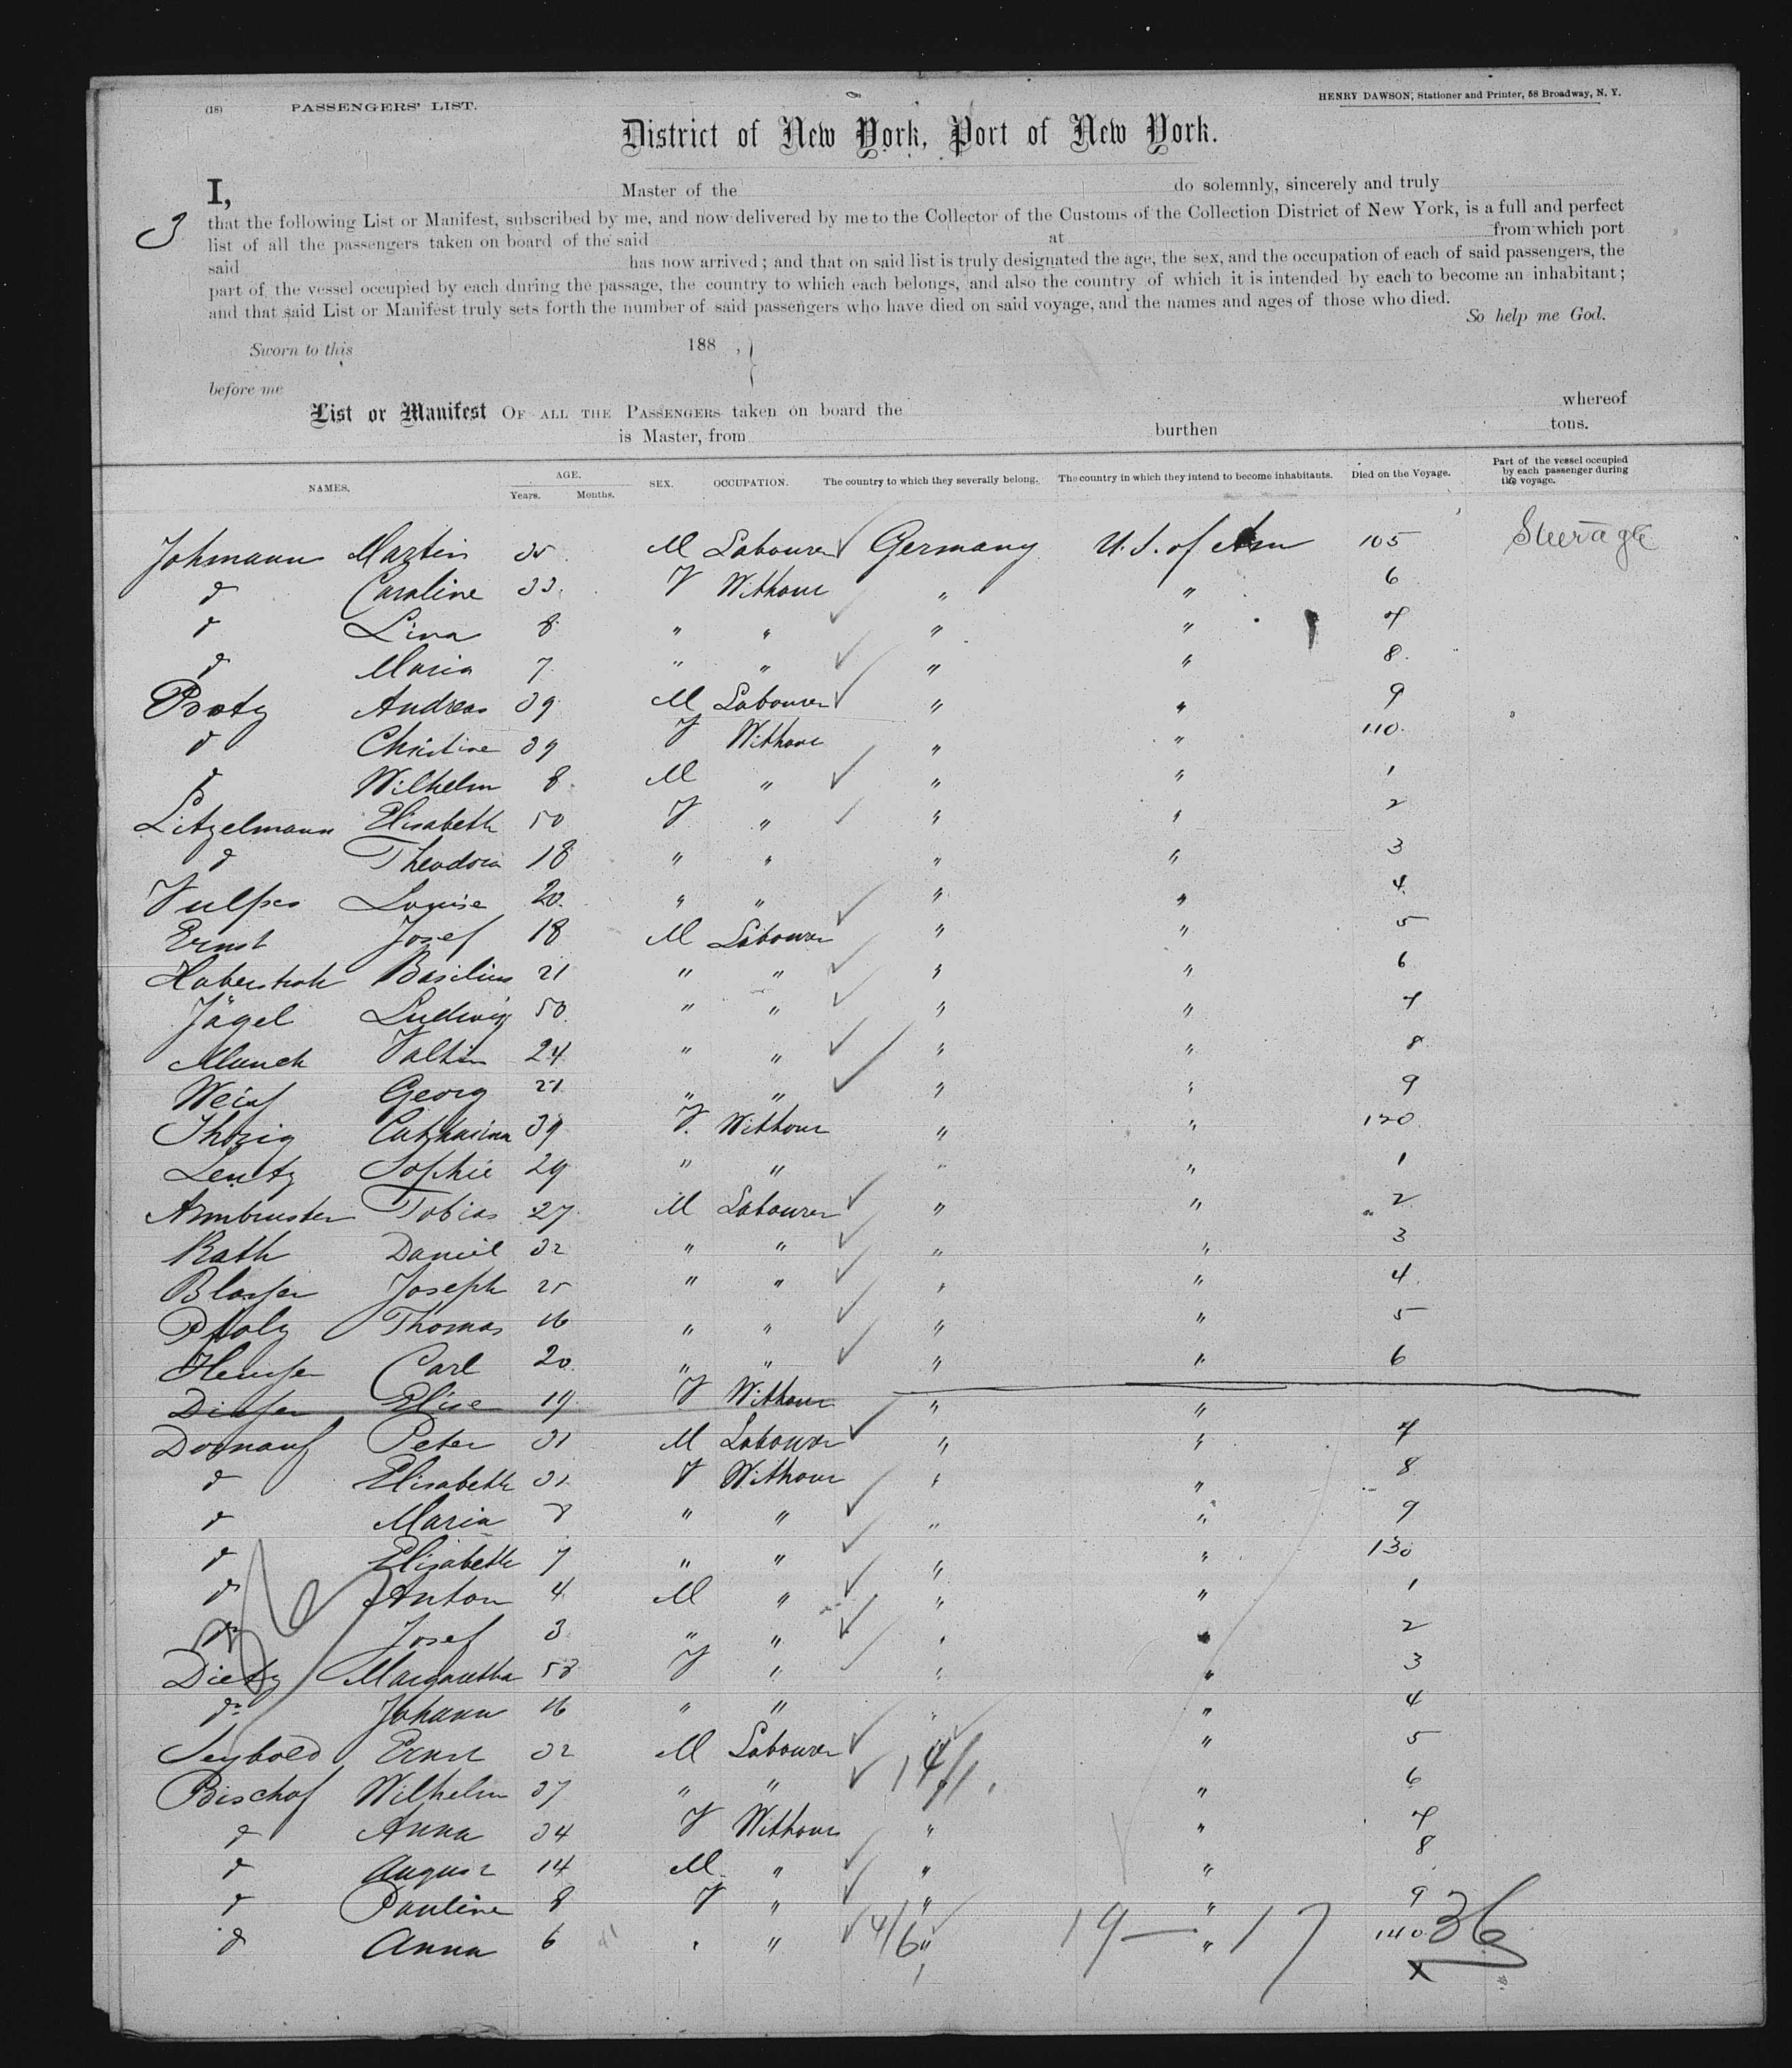 (18) PASSENGERS' LIST. HENRY DAWSON, Stationer and Printer, 58 Broadway, N. Y.
District of New York, Port of New York.
I, Master of the do solemnly, sincerely and truly
3 that the following List or Manifest, subscribed by me, and now delivered by me to the Collector of the Customs of the Collection District of New York, is a full and perfect
list of all the passengers taken on board of the said at from which port
said has now arrived; and that on said list is truly designated the age, the sex, and the occupation of each of said passengers, the
part of the vessel occupied by each during the passage, the country to which each belongs, and also the country of which it is intended by each to become an inhabitant;
and that said List or Manifest truly sets forth the number of said passengers who have died on said voyage, and the names and ages of those who died.
So help me God.
Sworn to this 188 ,
before me
List or Manifest OF ALL THE PASSENGERS taken on board the whereof
is Master, from burthen tons.
NAMES. AGE. Years. Months. SEX. OCCUPATION. The country to which they severally belong. The country in which they intend to become inhabitants. Died on the Voyage. Part of the vessel occupied by each passenger during the voyage.
Johmann Martin 35 M Labourer Germany U. S. of Am 105 Steerage
d Caroline 33 F Without " " 6
d Lina 8 " " " " 7
d Maria 7 " " " " 8
Andreas 39 M Labourer " " 9
d Christine 39 F Without " " 110
d Wilhelm 8 M " " " 1
Litzelmann Elisabeth 50 F " " " 2
d Theodora 18 " " " " 3
Vulpes Louise 20 " " " " 4
Ernst Josef 18 M Labourer " " 5
Haberstroh Basilius 21 " " " " 6
Jägel Ludwig 50 " " " " 7
Munch Valtin 24 " " " " 8
Georg 21 " " " " 9
Catharina 39 F Without " " 120
Lentz Sophie 29 " " " " 1
Armbruster Tobias 27 M Labourer " " 2
Rath Daniel 32 " " " " 3
Joseph 25 " " " " 4
Thomas 16 " " " " 5
Carl 20 " " " " 6
Elise 19 F Without " "
Dornauf Peter 31 M Labourer " " 7
d Elisabeth 31 F Without " " 8
d Maria 8 " " " " 9
d Elisabeth 7 " " " " 130
d Anton 4 M " " " 1
d Josef 3 " " " " 2
Dietz Margaretha 58 F " " " 3
d Johann 16 " " " " 4
Seybold Ernst 32 M Labourer " 5
Bischof Wilhelm 37 " " 14/1 " 6
d Anna 34 F Without " " 7
d August 14 M " " " 8
d Pauline 8 F " " " 9
d Anna 6 " " 4/6 " 19 — 17 140 36
X